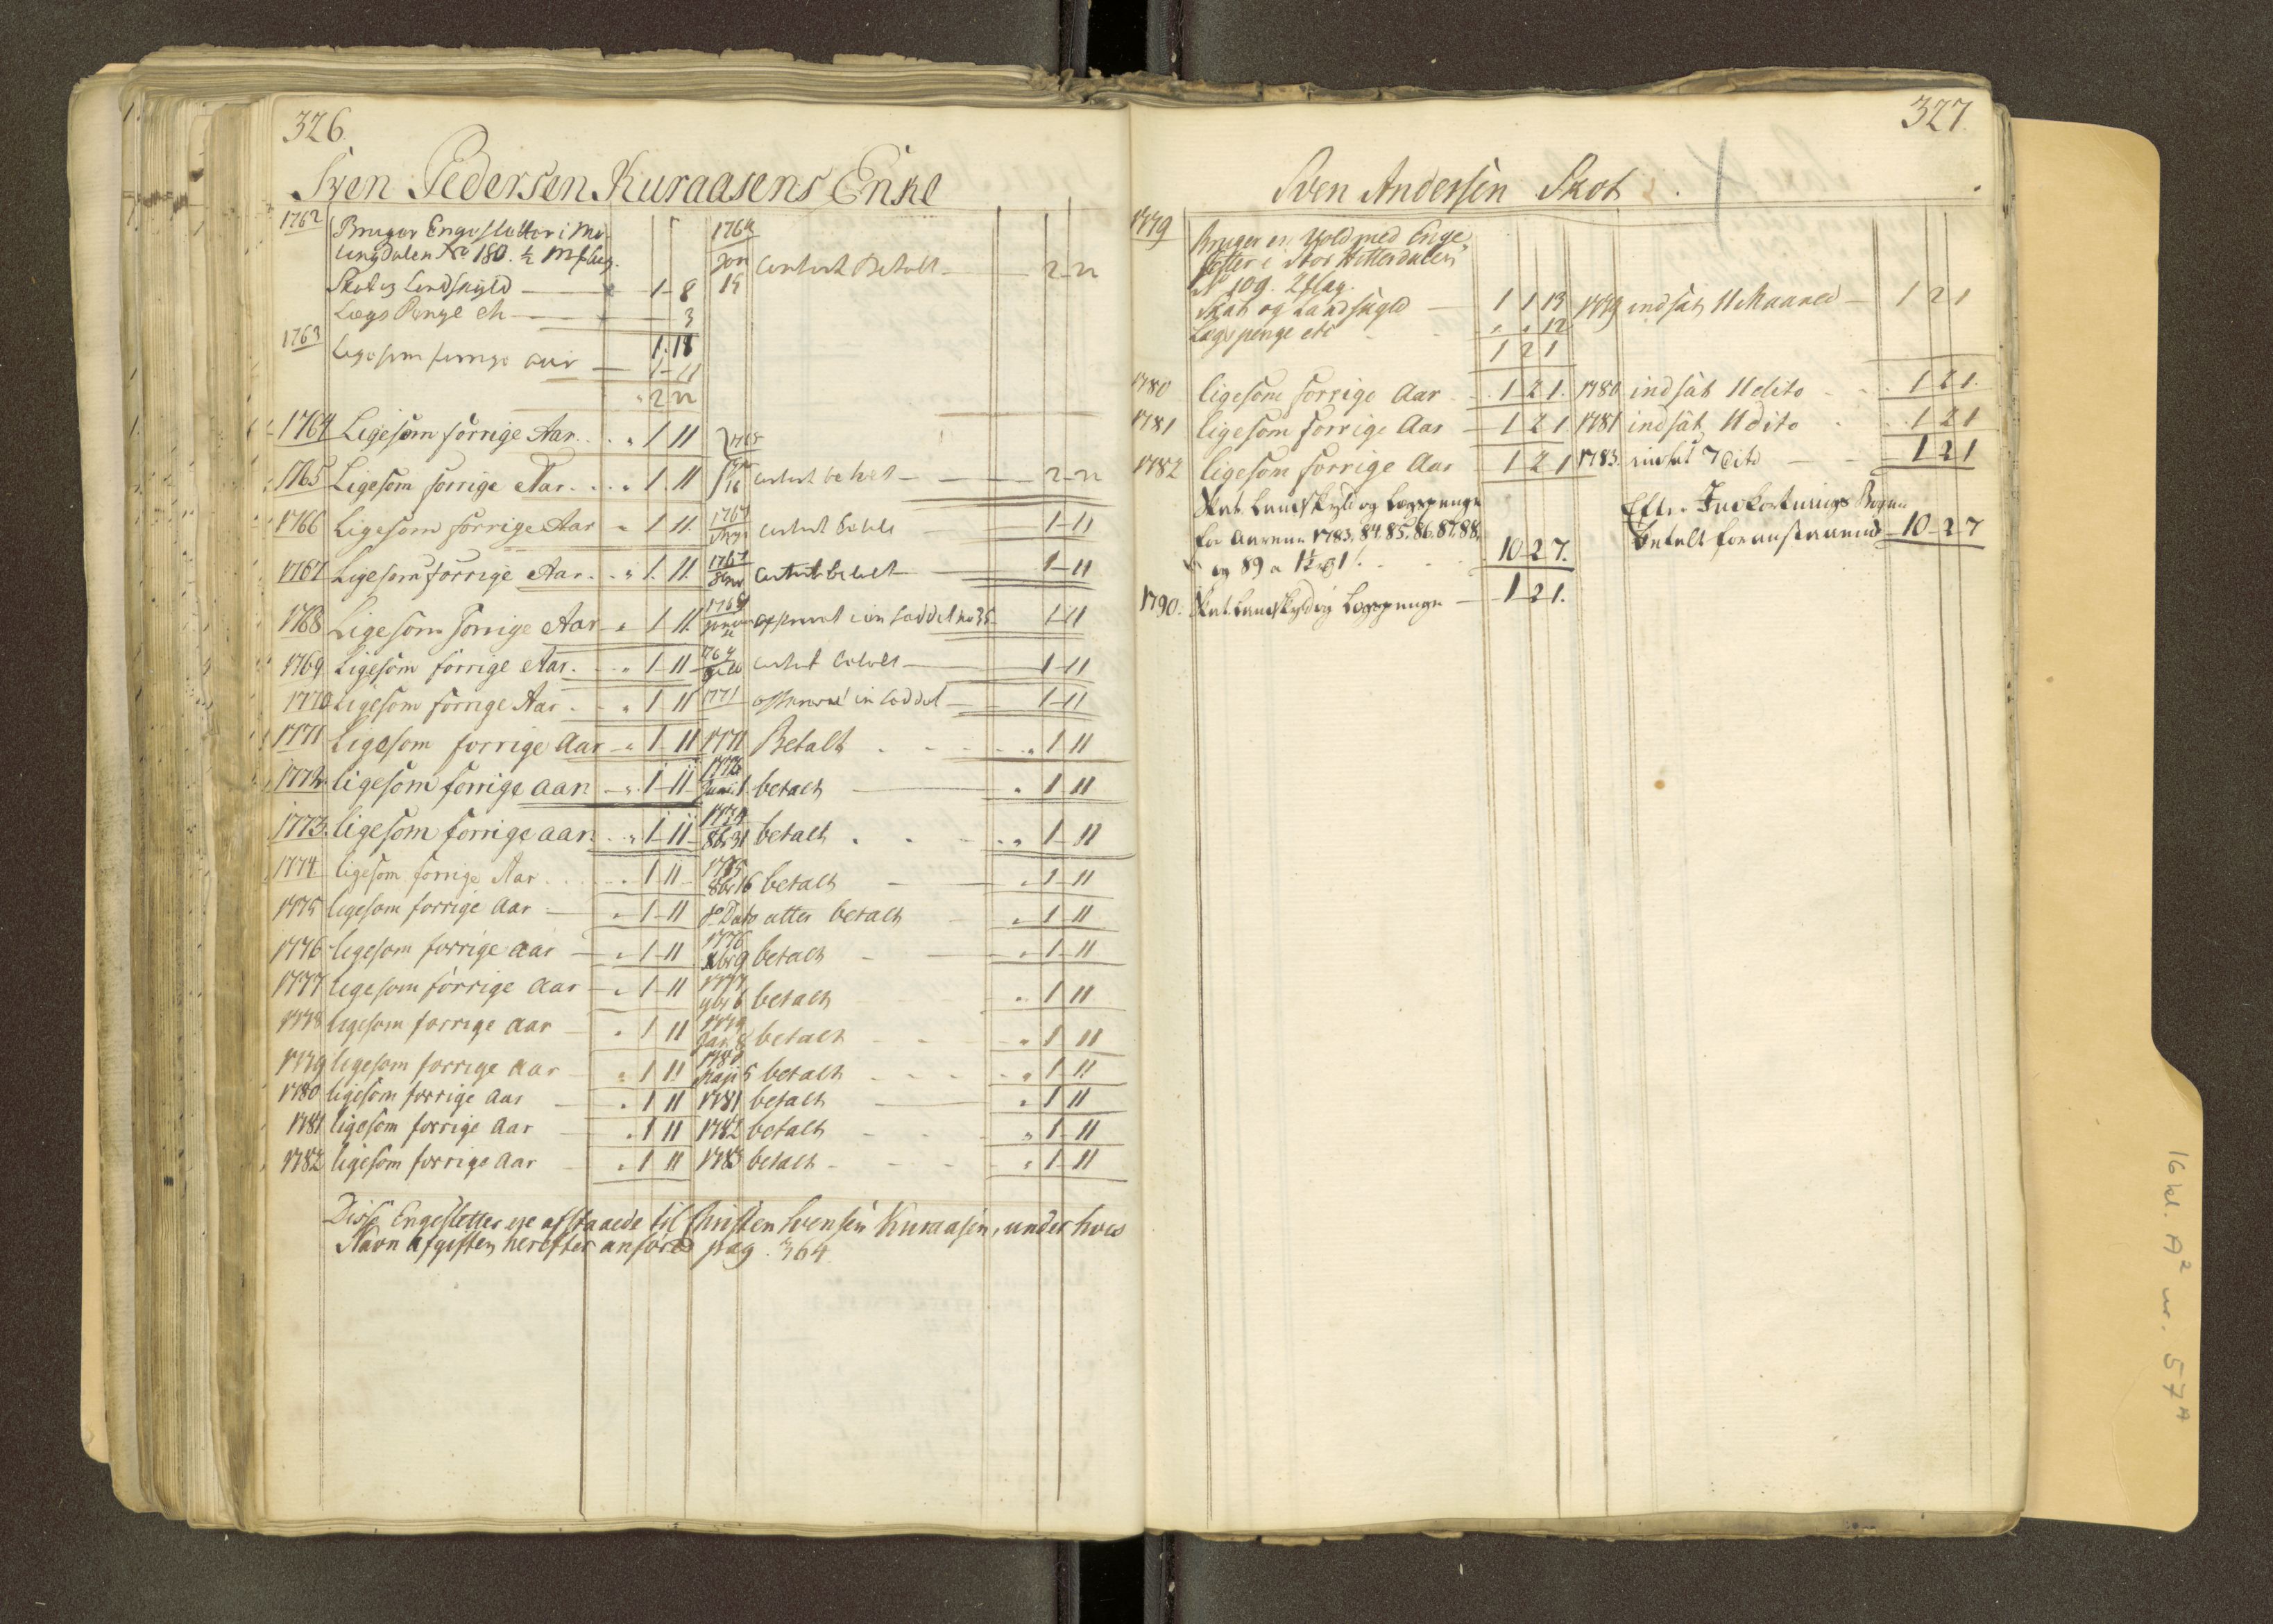 326.
Sven Pedersen Kuraasens Enke
1762 Bruger Engesletter i
lingdalen No 180. ½
Skat og Landskyld 1 - 8
Lægs Penge etc 3
1. 11
1763 Ligesom forrige aar 1 - 11
2 22
1764 Jan 15 Contant Betalt 2 - 22
1764 Ligesom forrige Aar. 1 11
1765 Ligesom forrige Aar. 1. 11 contant betalt 2 - 22
1766 Ligesom forrige Aar 1 11. contant betalt 1 - 11
1767 Ligesom forrige Aar. 1. 11. 1767 contant betalt 1 - 11
1768 Ligesom forrige Aar 1 11. afskrevet i en Saddel 1 - 11
1769 Ligesom forrige Aar. 1 - 11 contant betalt 1 - 11
1770 Ligesom forrige Aar 1 11 1771 in Saddel 1 - 11
1771 Ligesom forrige Aar 1 - 11 1771 Betalt 1 11
1772. ligesom forrige aar 1 - 11 Junii 1 betalt 1 11
1773. ligesom forrige aar 1 - 11 1774 8br 31 betalt 1 - 11
1774 ligesom forrige Aar 1 - 11 1775 8br 16 betalt 1 - 11
1775 ligesom forrige Aar 1 - 11 Dato atter betalt 1 - 11
1776 ligesom forrige Aar 1 - 11 1776 betalt 1 - 11
1777 ligesom forrige Aar 1 - 11 1777 9br 6 betalt 1 11
1778 ligesom forrige Aar 1 11 1779 Jan 8 betalt 1 11
1779 ligesom forrige Aar 1 11 1780 Maji 5 betalt 1 - 11
1780 ligesom forrige Aar 1 11 1781 betalt 1 11
1781 ligesom forrige Aar 1 11 1782 betalt 1 - 11
1782 ligesom forrige Aar 1 11 1783 betalt 1 - 11
Disse Engesletter ere afstaaede til Christen Svensen Kuraasen, under hvis
Navn Afgiften herefter anføres pag. 364.
327.
Sven Andersen Skot
1779 Bruger en Vold med Enge
sletter i Stor Hitterdalen
No 109. 2 slag.
Skat og Landskyld 1 1 13 1779 indsat 11 Maaned 1 2 1
Lægspenge etc 12
1 2 1
1780 ligesom forrige Aar 1 2 1. 1780 indsat 11 dito 1 2 1.
1781 ligesom forrige Aar 1 2 1 1781 indsat 11 dito 1 2 1
1782 ligesom forrige Aar 1 2 1 1783 indsat 7 dito 1 2 1
Skat Landskyld og Lægspenge
for Aarene 1783. 84. 85. 86. 87. 88.
og 89 a 10 2 7.
Efter Indkortnings Bogen
betalt foranstaaende 10 - 2 7
1790. Skat Landskyld og Lægspenge 1 2 1.
16 kl. A² nr. 57 A